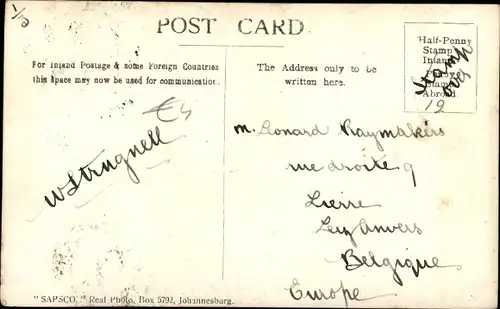 1/10
POST CARD
For Inland Postage & some Foreign Countries
this space may now be used for communication.
The Address only to be
written here.
Half-Penny
Stamp
Inland
Stamp
Abroad.
Stamp
over
12
€4
W Strugnell
M. Leonard Raymakers
rue droite 9
Lierre
Lez Anvers
Belgique
Europe
"SAPSCO," Real Photo, Box 5792, Johannesburg.